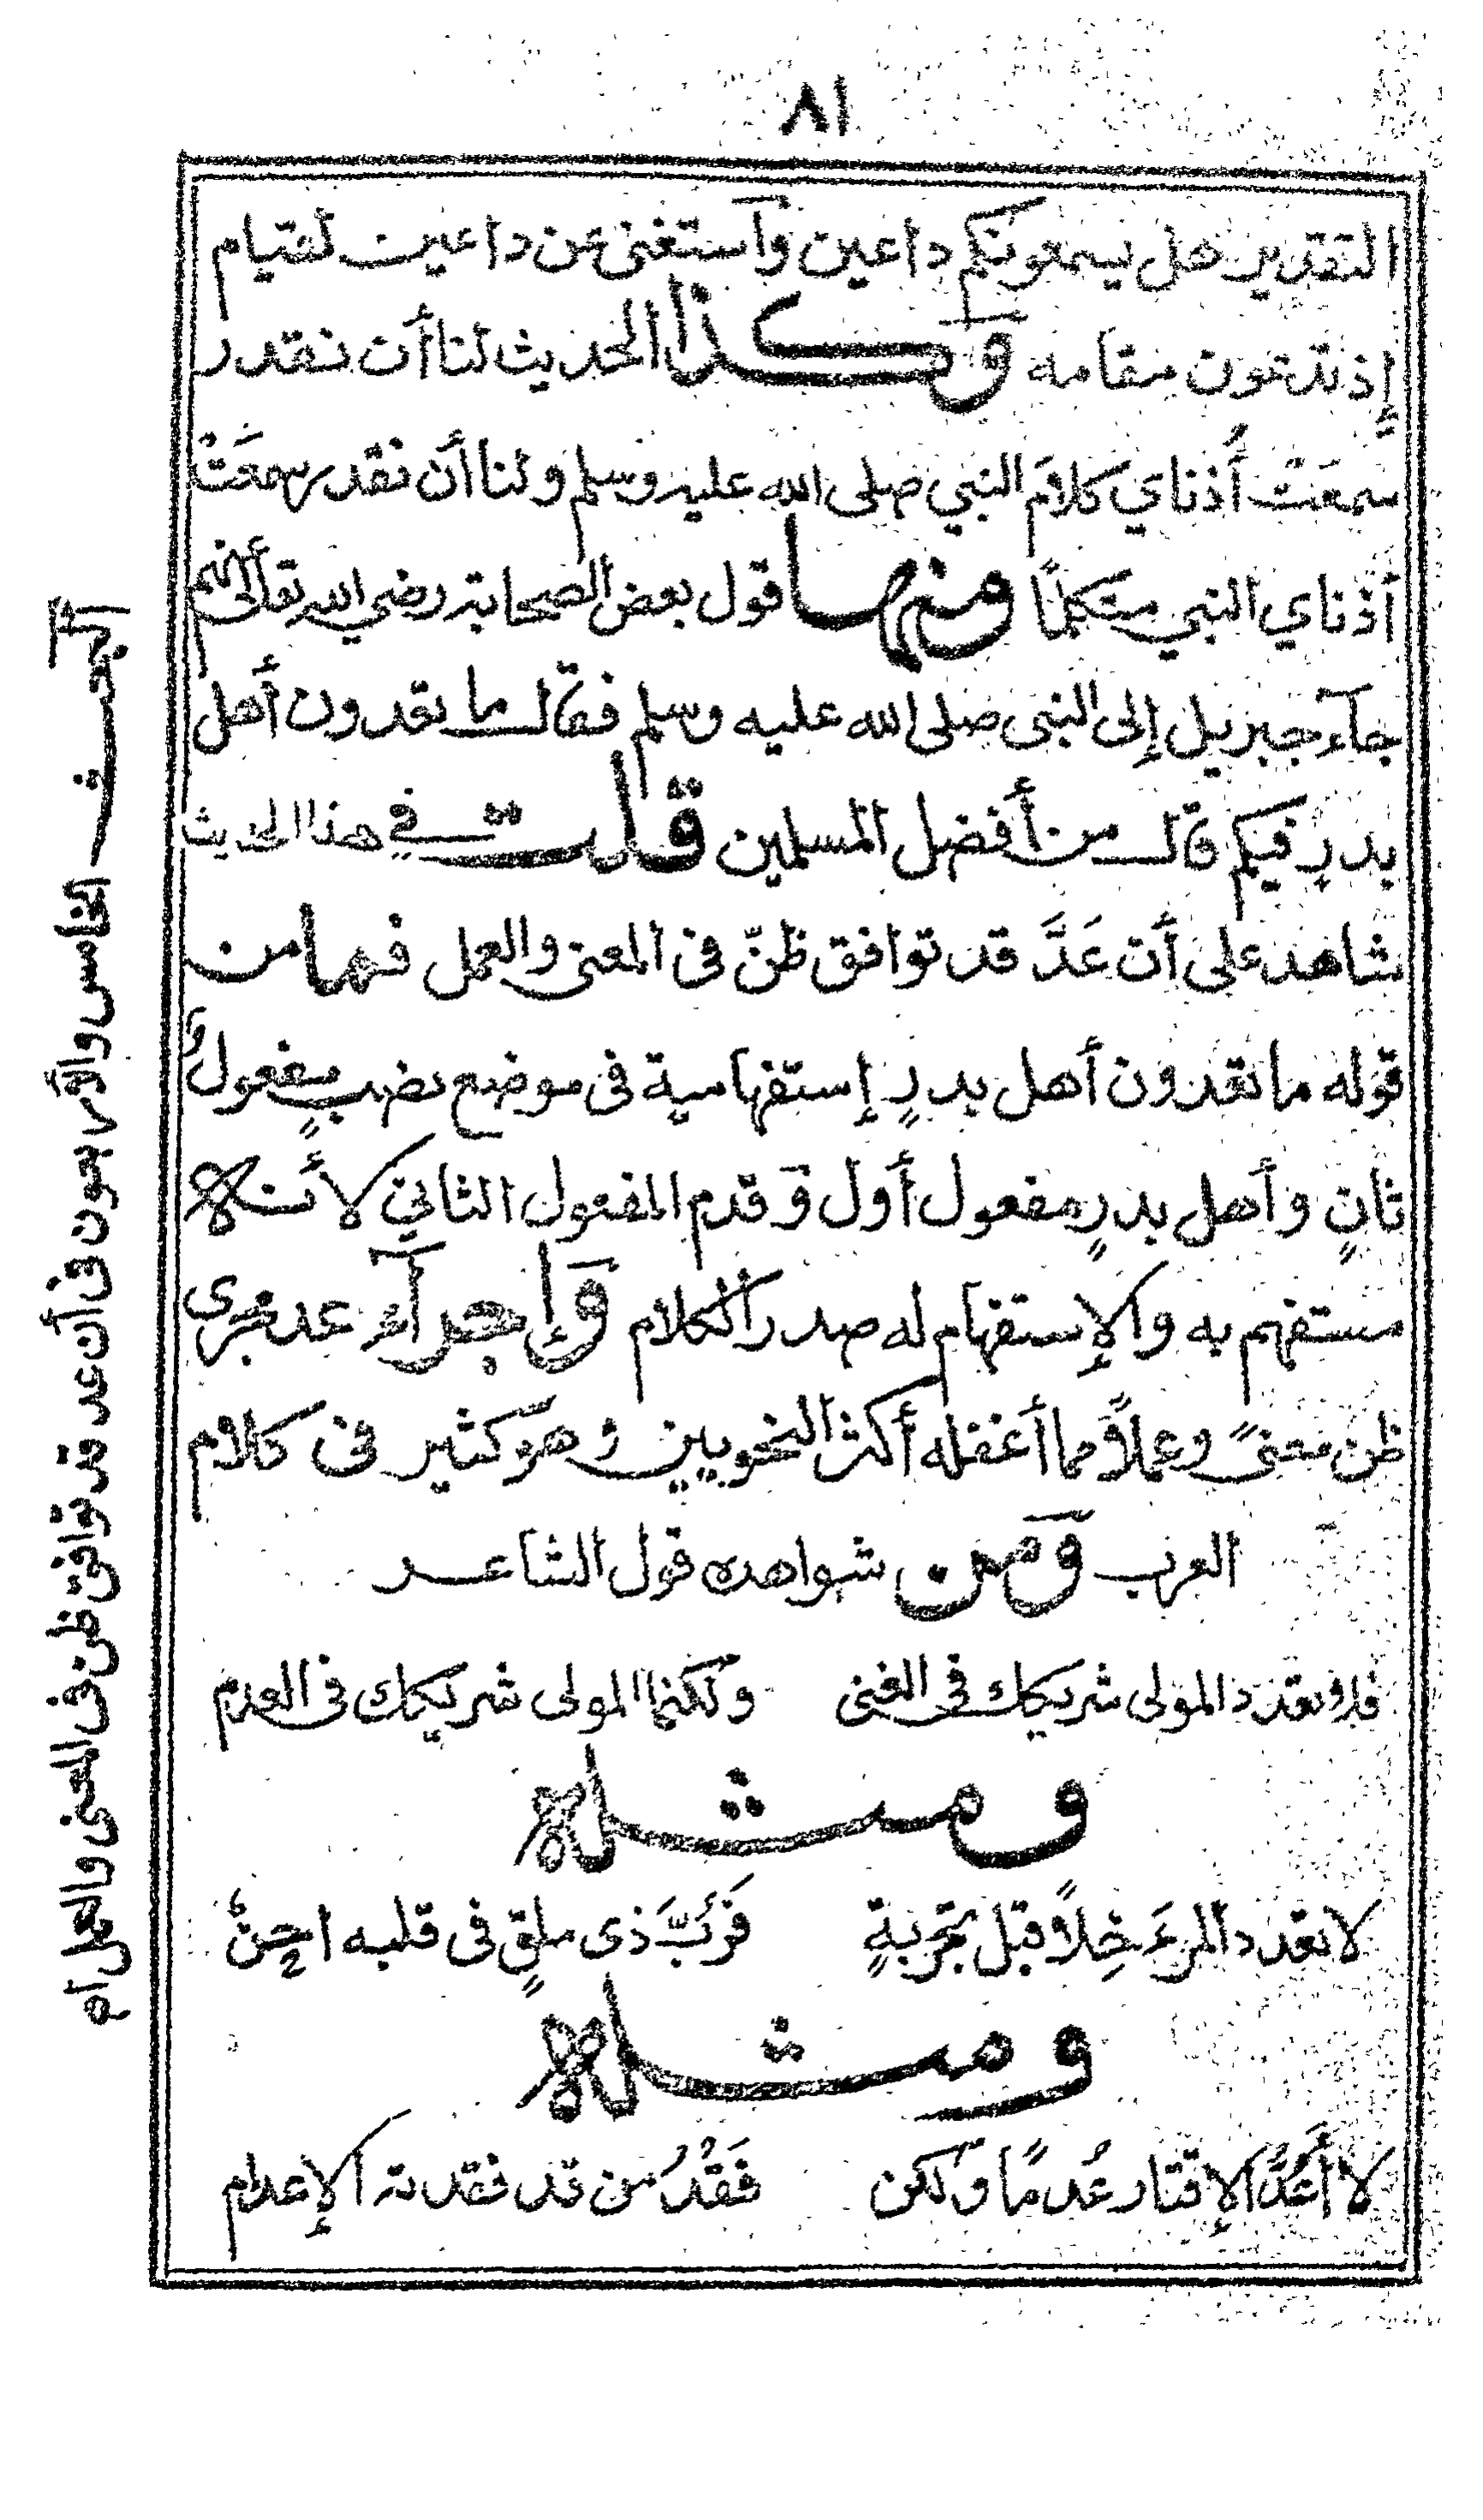 ٨١
التقدير هل يسمعونكم داعين وآستغنى عن داعين لقيام
إذ تدعون مقامه وكذا الحديث لنا أن نقدر
سمعَتْ أُذناي كلامَ النبي صلى الله عليه وسلم ولنا أن نقدر سمعَتْ
أذناي النبي متكلمًا ومنها قول بعض الصحابة رضي الله تعالى عنهم
جآء جبريل إلى النبى صلى الله عليه وسلم فقال ما تعدون أهل
بدرٍ فيكم قال من أفضل المسلمين قلت في هذا الحديث
شاهد على أن عَدَّ قد توافق ظنّ فى المعنى والعمل فما من
قوله ما تعدون أهل بدرٍ إستفهامية فى موضع نصب بمفعولٍ
ثانٍ وأهل بدرٍ مفعول أول وقدم المفعول الثاني لأنه
مستفهم به والإستفهام له صدر الكلام وإجرآء عد مجرى
ظن معنىً وعملاً مما أغفله أكثر النحويين وهو كثير فى كلام
العرب ومن شواهده قول الشاعر
فلا تعدد المولى شريكك فى الغنى ولكنما المولى شريكك فى العدم
ومثله
لا تعدد المرءَ خِلاً قبل تجربةٍ فَرُبَّ ذى ملقٍ فى قلبه احنٌ
ومثله
لا أَعُدُّ الإقتار عُدمًا ولكن فَقْدُ من قد فقدته الإعدام
البحث الخامس والأربعون فى أن عد قد توافق ظن فى المعنى والعمل أم